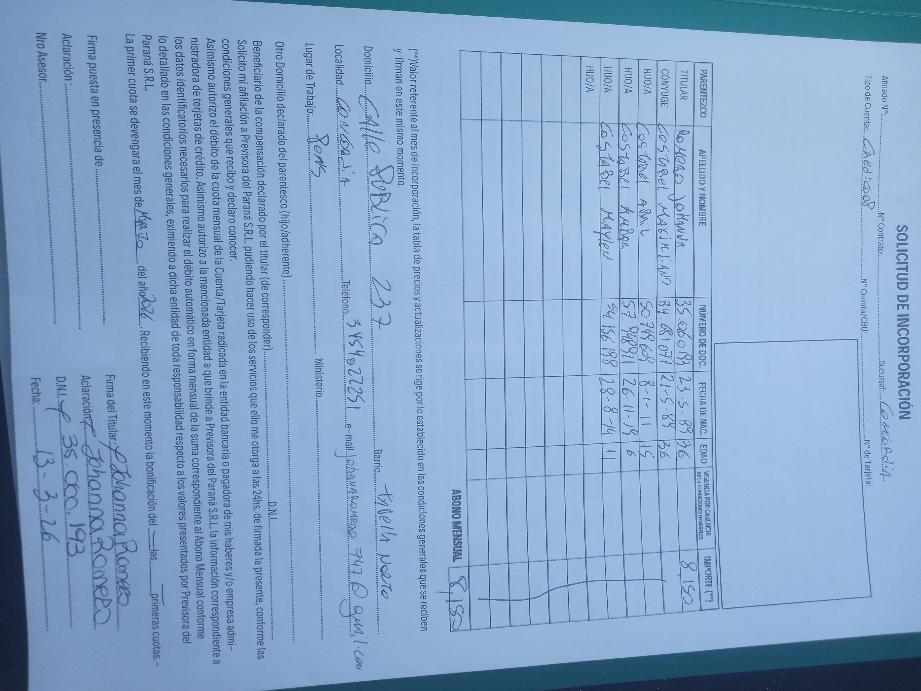 SOLICITUD DE INCORPORACIÓN
Afiliado Nº: Nº Contrato: Sucursal: Concordia
Tipo de Cuenta: Nº Cuenta/CBU: Nº de Tarjeta:
PARENTEZCO APELLIDO Y NOMBRE NUMERO DE DOC. FECHA DE NAC. EDAD IMPORTE (*)
TITULAR Romero Johanna 23-5-89 36 8,150
CONYUGE Costabel Maximiliano 21-5-89 36
HIJO/A Costabel 8-1-11 15
HIJO/A Costabel 26-11-19 6
HIJO/A Costabel Maylen 54 156 199 28-8-14 11
HIJO/A
ABONO MENSUAL 8,150
(*) Valor referente al mes de incorporación, la tabla de precios y actualizaciones se rige por lo establecido en las condiciones generales que se reciben
y firman en este mismo momento.
Domicilio Calle Publica 237 Barrio
Localidad Concordia Teléfono 3454027251 e-mail
Lugar de Trabajo Ministerio
Otro Domicilio declarado del parentesco (hijo/adherente)
Beneficiario de la compensación declarado por el titular (de corresponder) D.N.I.
Solicito mi afiliación a Previsora del Paraná S.R.L. pudiendo hacer uso de los servicios que ello me otorga a las 24hs. de firmada la presente, conforme las
condiciones generales que recibo y declaro conocer.
Asimismo autorizo el débito de la cuota mensual de la Cuenta/Tarjeta radicada en la entidad bancaria o pagadora de mis haberes y/o empresa admi-
nistradora de terjetas de crédito. Asimismo autorizo a la mencionada entidad a que brinde a Previsora del Paraná S.R.L. la información correspondiente a
los datos identificatorios necesarios para realizar el débito automático en forma mensual de la suma correspondiente al Abono Mensual conforme
lo detallado en las condiciones generales, eximiendo a dicha entidad de toda responsabilidad respecto a los valores presentados por Previsora del
Paraná S.R.L.
La primer cuota se devengara el mes de Marzo del año 2026. Recibiendo en este momento la bonificación del las primeras cuotas.-
Firma puesta en presencia de Firma del Titular: Johanna Romero
Aclaración: Aclaración: Johanna Romero
D.N.I.
Nro Asesor Fecha: 13-3-26